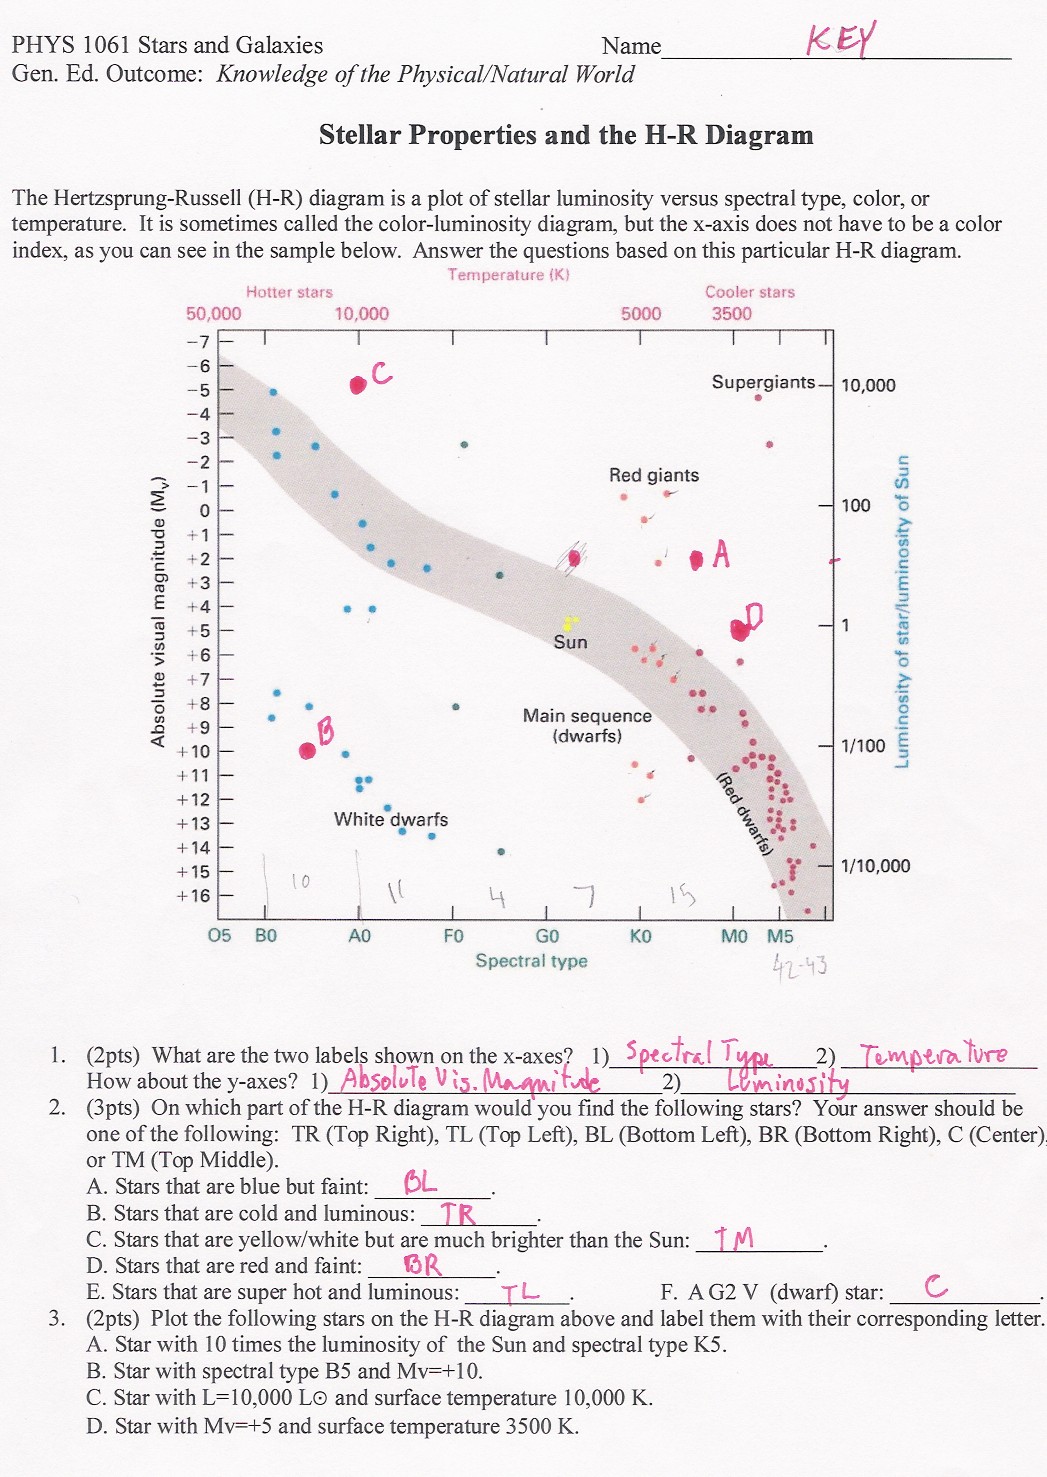 PHYS 1061 Stars and Galaxies Name KEY
Gen. Ed. Outcome: Knowledge of the Physical/Natural World
Stellar Properties and the H-R Diagram
The Hertzsprung-Russell (H-R) diagram is a plot of stellar luminosity versus spectral type, color, or
temperature. It is sometimes called the color-luminosity diagram, but the x-axis does not have to be a color
index, as you can see in the sample below. Answer the questions based on this particular H-R diagram.
Temperature (K)
Hotter stars Cooler stars
50,000 10,000 5000 3500
-7
-6
-5
-4
-3
-2
-1
0
+1
+2
+3
+4
+5
+6
+7
+8
+9
+10
+11
+12
+13
+14
+15
+16
Absolute visual magnitude (Mv)
C
Supergiants
Red giants
A
D
Sun
Main sequence
(dwarfs)
B
White dwarfs
(Red dwarfs)
10,000
100
1
1/100
1/10,000
Luminosity of star/luminosity of Sun
10 11 4 7 15
O5 B0 A0 F0 G0 K0 M0 M5
Spectral type
42-43
1. (2pts) What are the two labels shown on the x-axes? 1) Spectral Type 2) Temperature
How about the y-axes? 1) Absolute Vis. Magnitude 2) Luminosity
2. (3pts) On which part of the H-R diagram would you find the following stars? Your answer should be
one of the following: TR (Top Right), TL (Top Left), BL (Bottom Left), BR (Bottom Right), C (Center),
or TM (Top Middle).
A. Stars that are blue but faint: BL.
B. Stars that are cold and luminous: TR.
C. Stars that are yellow/white but are much brighter than the Sun: TM.
D. Stars that are red and faint: BR.
E. Stars that are super hot and luminous: TL. F. A G2 V (dwarf) star: C.
3. (2pts) Plot the following stars on the H-R diagram above and label them with their corresponding letter.
A. Star with 10 times the luminosity of the Sun and spectral type K5.
B. Star with spectral type B5 and Mv=+10.
C. Star with L=10,000 L☉ and surface temperature 10,000 K.
D. Star with Mv=+5 and surface temperature 3500 K.